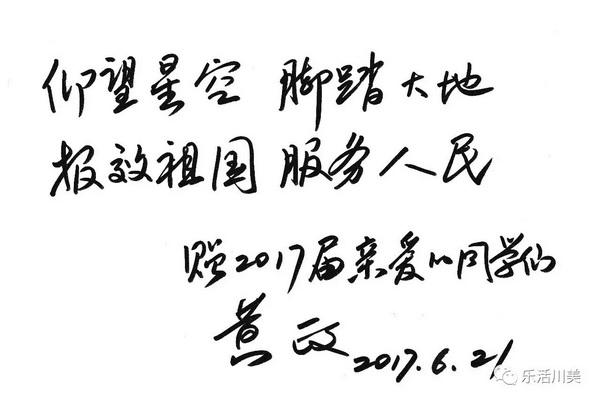 仰望星空 脚踏大地
报效祖国 服务人民
赠2017届亲爱的同学们
黄政 2017.6.21
乐活川美